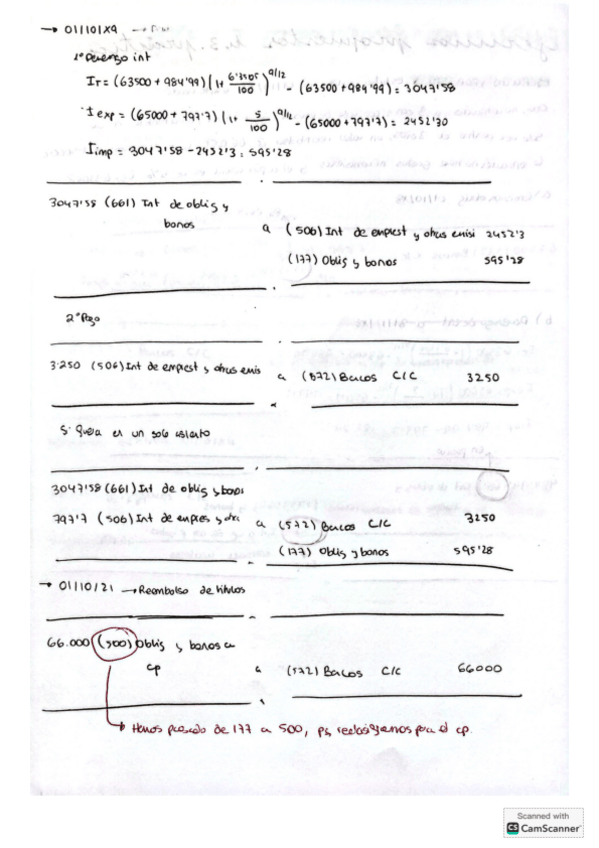 → 01/10/X9
1º Devengo int
Ir = (63500 + 984'99) [1+ 6'3505/100]^9/12 - (63500 + 984'99) = 3047'58
I exp = (65000 + 797'7) [1+ 5/100]^9/12 - (65000 + 797'7) = 2452'30
Iimp = 3047'58 - 2452'3 = 595'28
3047'58 (661) Int de oblig y
bonos
a (506) Int de emprest y otras emisi 2452'3
(177) Oblig y bonos 595'28
2º Pago
3250 (506) Int de emprest y otras emis a (572) Bancos C/C 3250
Si fuera en un solo asiento
3047'58 (661) Int de oblig y bonos
797'7 (506) Int de empres y otra a (572) Bancos C/C 3250
(177) Oblig y bonos 595'28
→ 01/10/21 → Reembolso de títulos
66.000 (500) Oblig y bonos a
cp
a (572) Bancos C/C 66000
Hemos pasado de 177 a 500, pq reclasificamos para el cp.
Scanned with
CS CamScanner